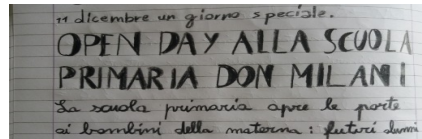 11 dicembre un giorno speciale.
OPEN DAY ALLA SCUOLA
PRIMARIA DON MILANI
La scuola primaria apre le porte
ai bambini della materna: futuri alunni